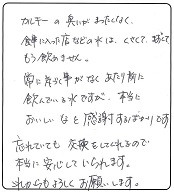 カルキーの臭いがまったくなく、
食事に入った店などの水は、くさくて、まずくて
もう飲めません。
常に有り難がなくあたり前に
飲んでいる水ですが、本当に
おいしいなと感謝するばかりです
忘れていても交換をしてくれるので
本当に安心していられます。
これからもよろしくお願いします。